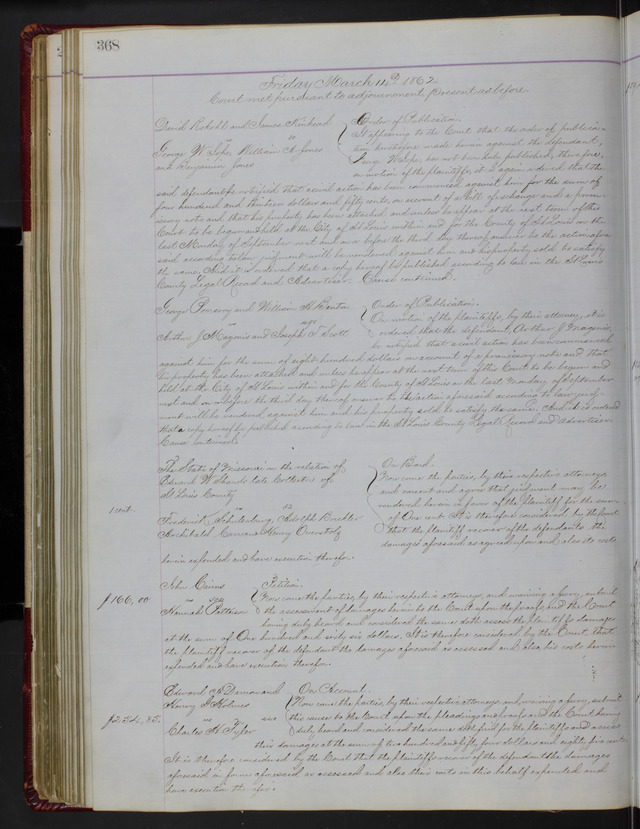 368
Friday March 14th 1862
Court met pursuant to adjournment, present as before.
David and James Kinkead
vs
George W. William A. Jones
and Benjamin Jones
Order of Publication.
It appearing to the Court that the order of publica-
tion heretofore made herein against the defendant,
has not been duly published, therefore,
on motion of the plaintiffs, it is again ordered that the
said defendant be notified that a civil action has been commenced against him for the sum of
four hundred and thirteen dollars and fifty cents, on account of a bill of exchange and a promis-
sory note and that his property has been attached and unless he appear at the next term of this
Court to be begun and held at the City of St Louis within and for the County of St Louis on the
last Monday of September next and on or before the third day thereof answer to the action afore-
said according to law, judgment will be rendered against him and his property sold to satisfy
the same. And it is ordered that a copy hereof be published according to law in the St Louis
County Legal Record and Advertiser. Cause continued.
George Pomeroy and William H. Benton
vs
Arthur J. Magenis and Joseph T. Scott
Order of Publication.
On motion of the plaintiffs, by their attorney, it is
ordered that the defendant Arthur J. Magenis,
be notified that a civil action has been commenced
against him for the sum of eight hundred dollars on account of a promissory note and that
his property has been attached and unless he appear at the next term of this Court to be begun and
held at the City of St Louis within and for the County of St Louis on the last Monday of September
next and on or before the third day thereof answer to the action aforesaid according to law judg-
ment will be rendered against him and his property sold to satisfy the same. And it is ordered
that a copy hereof be published according to law in the St Louis County Legal Record and Advertiser.
Cause continued.
The State of Missouri on the relation of
Edward W. late Collector of
St Louis County
vs
1 cent.
Frederick Schulenburg Adolph
Archibald Henry
On Bond.
Now come the parties, by their respective attorneys
and consent and agree that judgment may be
rendered herein in favor of the plaintiff for the sum
of One cent. It is therefore considered by the Court
that the plaintiff recover of the defendants the
damages aforesaid as agreed upon and also its costs
herein expended and have execution therefor.
John Cairns
vs
Hannah Patterson
Petition.
$166,00
Now come the parties, by their respective attorneys, and waiving a jury, submit
the assessment of damages herein to the Court upon the proofs, and the Court
having duly heard and considered the same doth assess the plaintiff's damages
at the sum of One hundred and sixty six dollars. It is therefore considered by the Court that
the plaintiff recover of the defendant the damages aforesaid as assessed and also his costs herein
expended and have execution therefor.
Edward and
Henry Holmes
vs
Charles H. Tyler
On Account.
$254,85.
Now come the parties, by their respective attorneys, and waiving a jury, submit
this cause to the Court upon the pleadings and proofs and the Court having
duly heard and considered the same doth find for the plaintiffs and assess
their damages at the sum of two hundred and fifty four dollars and eighty five cents.
It is therefore considered by the Court that the plaintiffs recover of the defendant the damages
aforesaid in form aforesaid as assessed and also their costs in this behalf expended and
have execution therefor.